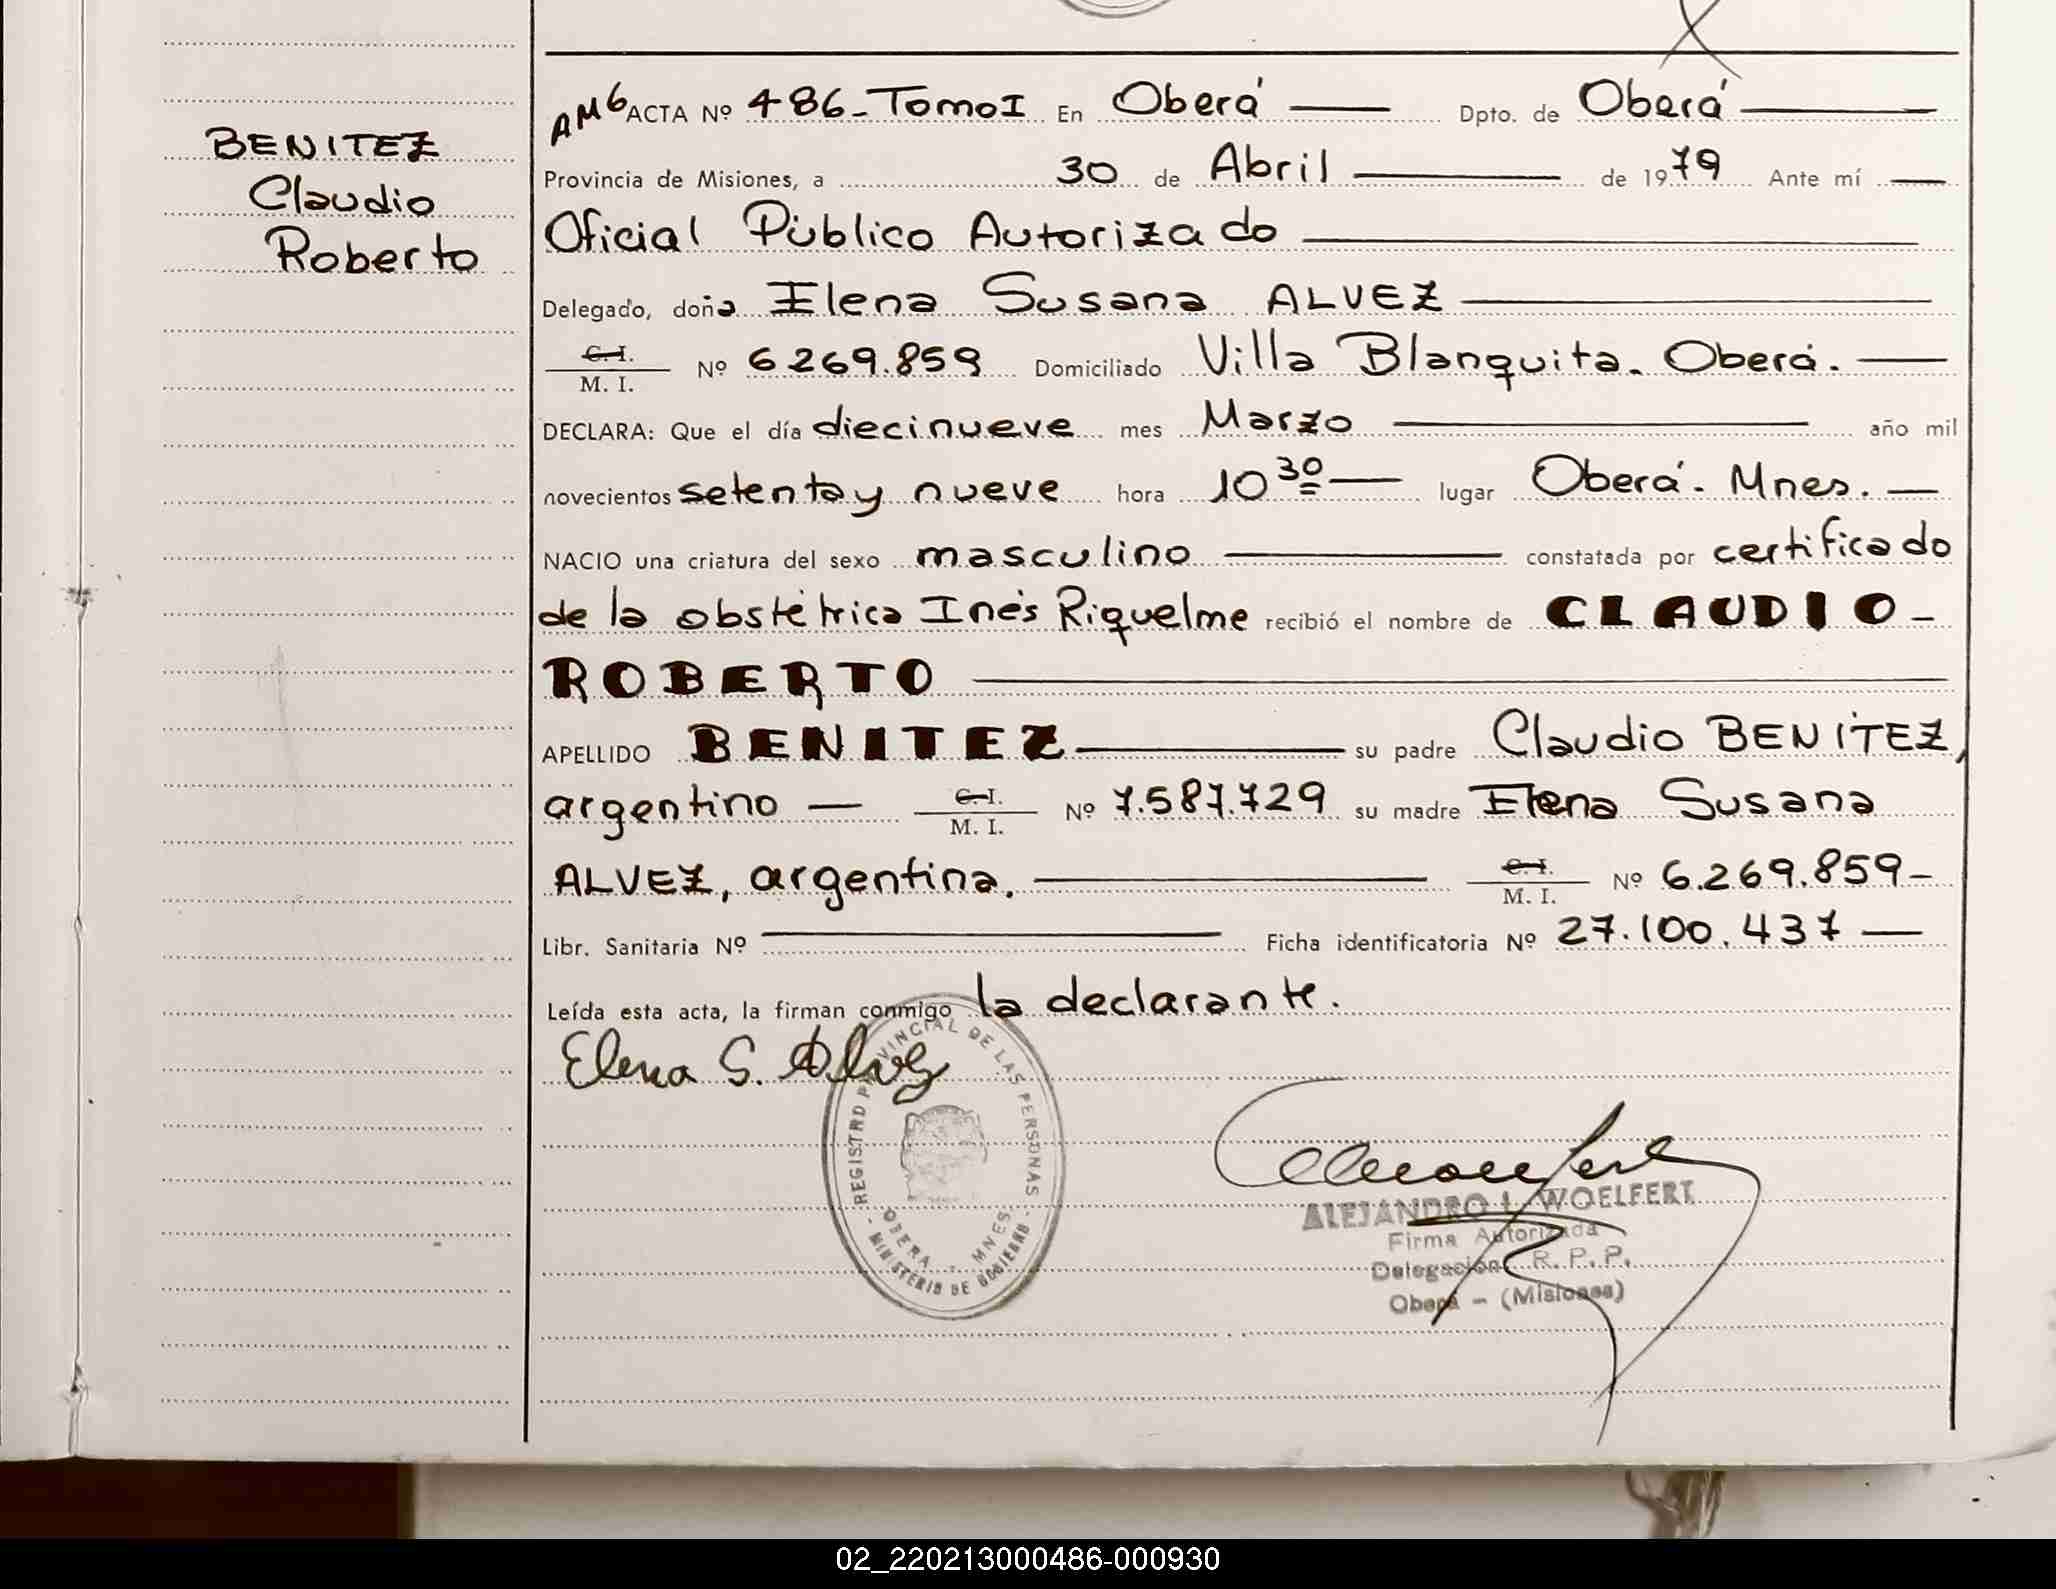 BENITEZ
Claudio
Roberto
AMG ACTA Nº 486-Tomo I En Oberá Dpto. de Oberá
Provincia de Misiones, a 30 de Abril de 1979 Ante mí
Oficial Público Autorizado
Delegado, doña Elena Susana ALVEZ
C.I. / M. I. Nº 6269.859 Domiciliado Villa Blanquita. Oberá.
DECLARA: Que el día diecinueve mes Marzo año mil
novecientos setenta y nueve hora 10 30 lugar Oberá. Mnes.
NACIO una criatura del sexo masculino constatada por certificado
de la obstétrica Inés Riquelme recibió el nombre de CLAUDIO
ROBERTO
APELLIDO BENITEZ su padre Claudio BENITEZ,
argentino C.I. / M. I. Nº 7.587.729 su madre Elena Susana
ALVEZ, argentina. C.I. / M. I. Nº 6.269.859
Libr. Sanitaria Nº Ficha identificatoria Nº 27.100.437
Leída esta acta, la firman conmigo la declarante.
Elena S. Alvez
REGISTRO PROVINCIAL DE LAS PERSONAS
OBERA - MNES
- MINISTERIO DE GOBIERNO -
ALEJANDRO L. WOELFERT
Firma Autorizada
Delegación R. P. P.
Oberá - (Misiones)
02_220213000486-000930